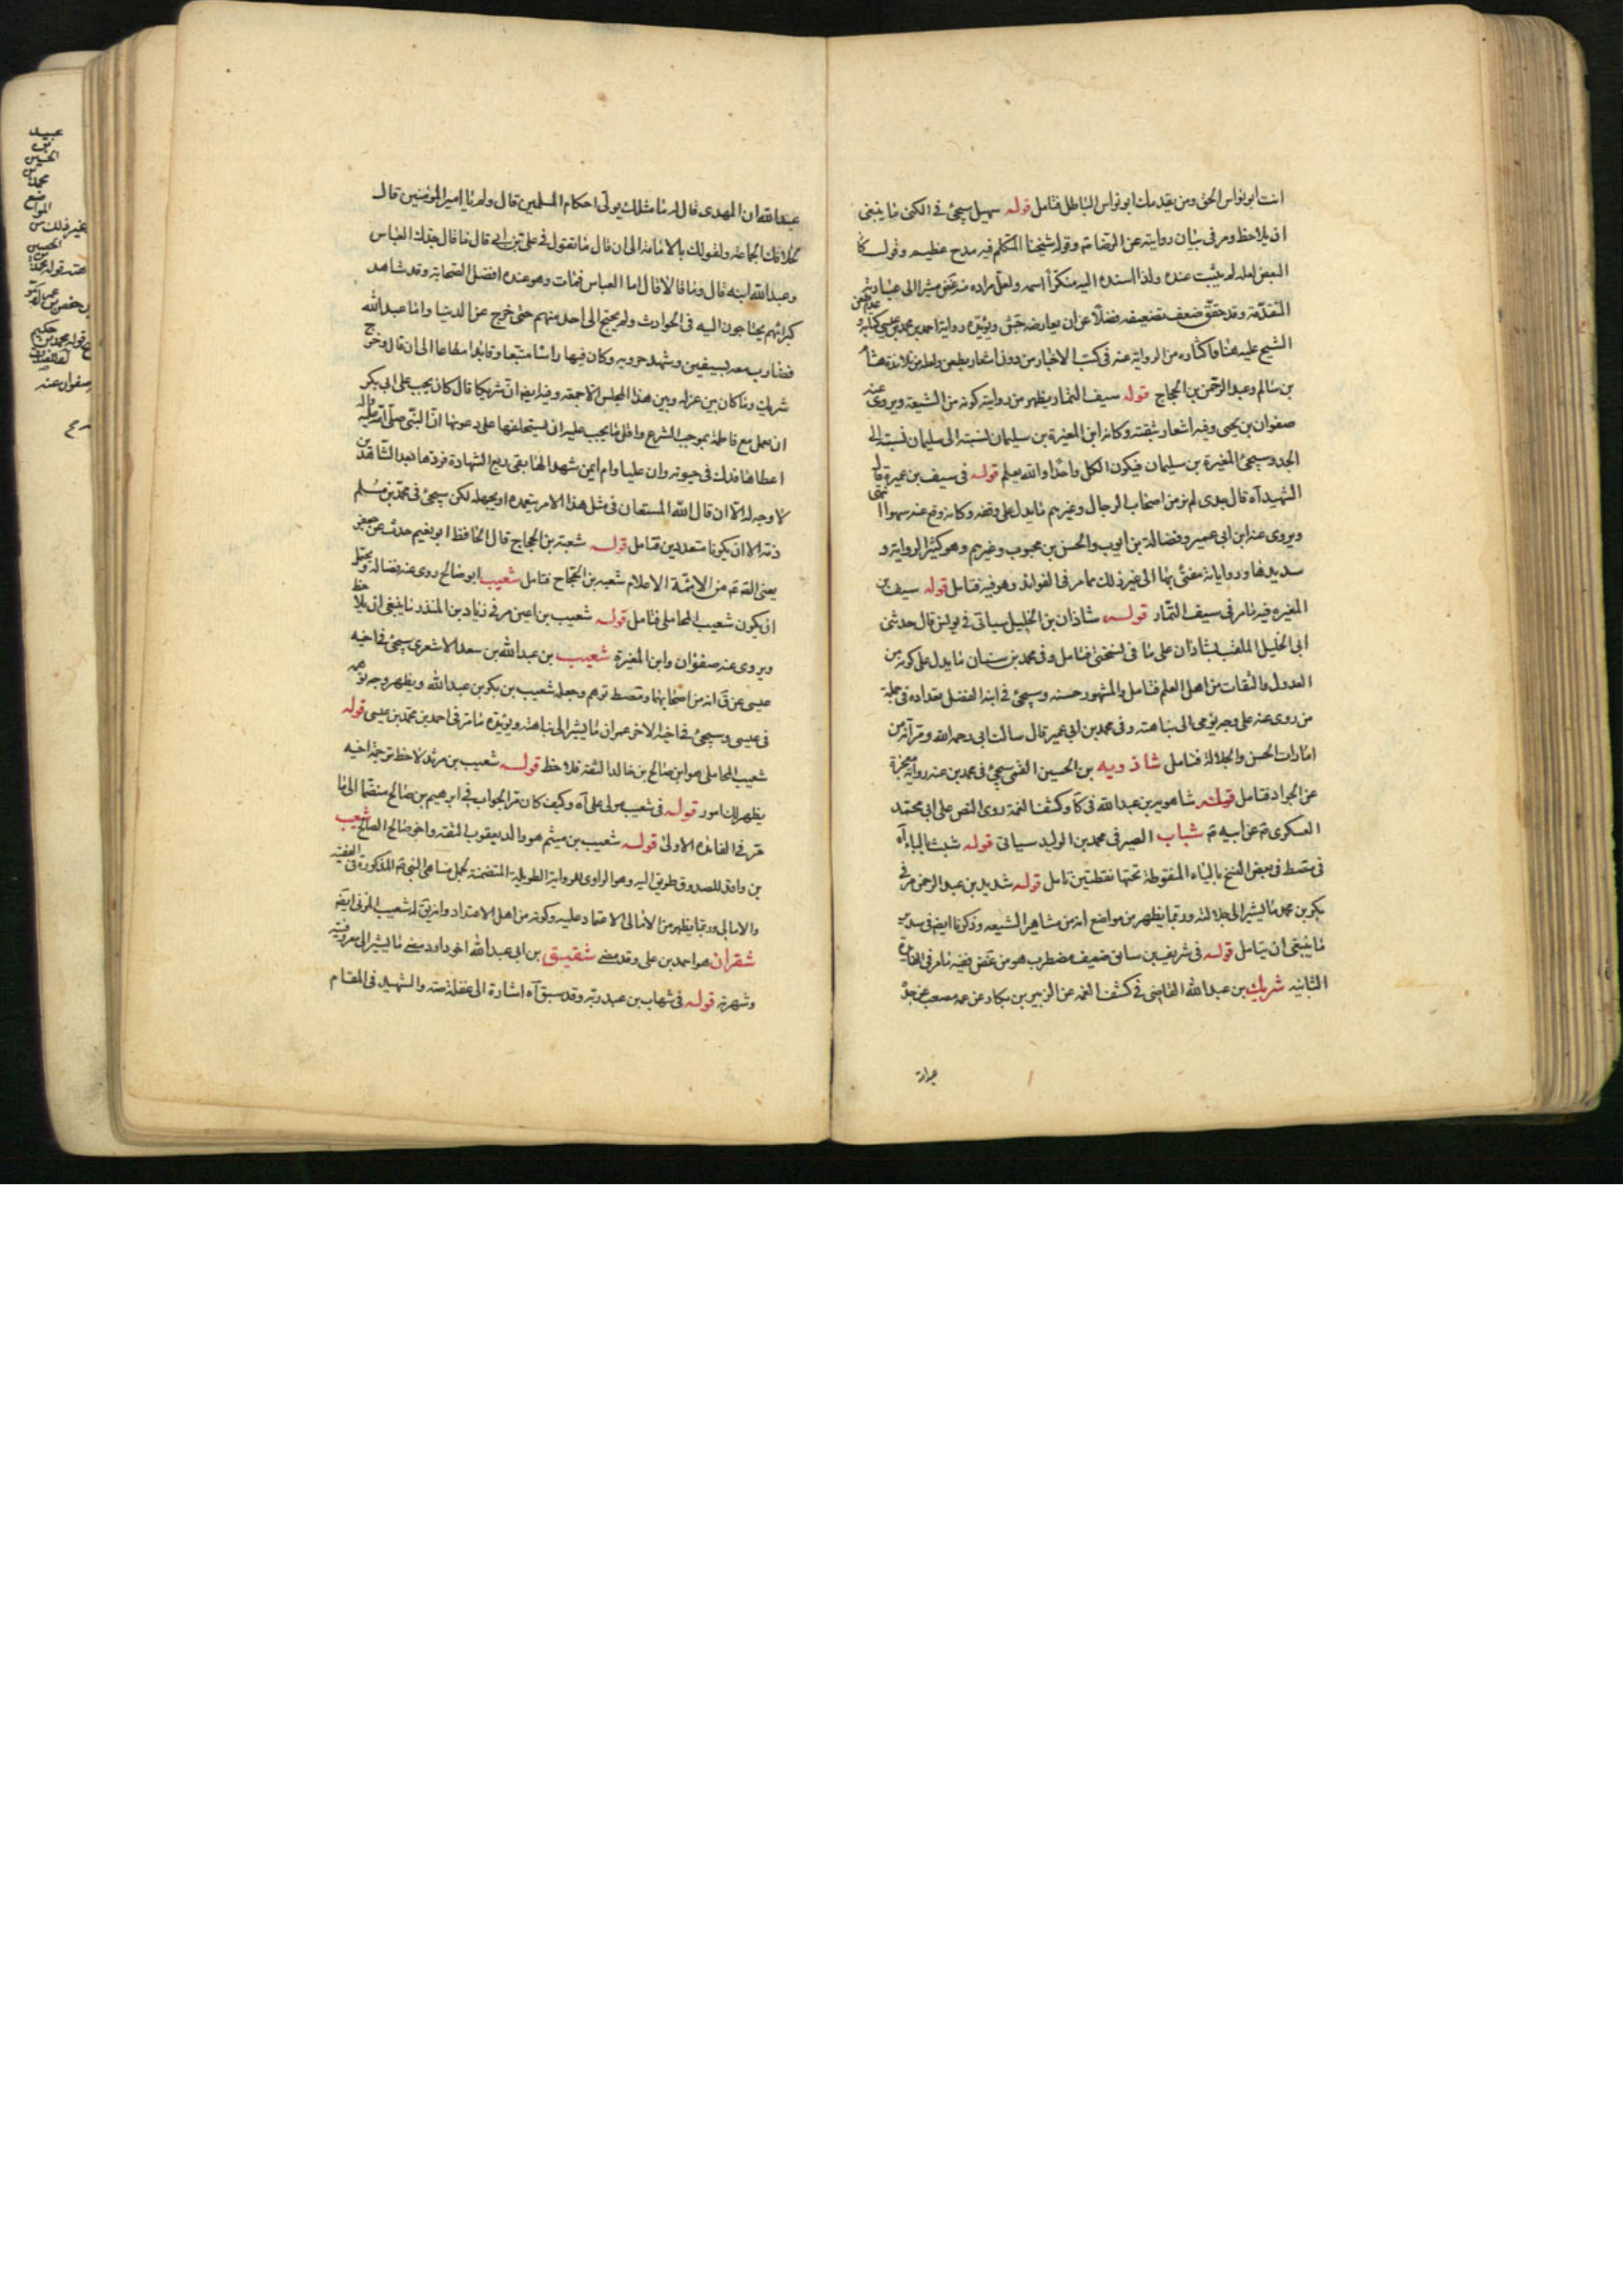 انت ابو نواس الحق ومن يقدمك ابو نواس الباطل فتامل قوله سهيل سيجئ في الكنى ما ينبغى
ان يلاحظ ومر في بيان روايته عن الرضا ع وقوله شيخنا المتكلم فيه مدح عظيم وقول
البعض لعله لم يثبت عنده ولذا اسنده اليه منكرا اسمه ولعل مراده
المتقدمة وقد حقق ضعف تضعيفه فضلا عن ان يعارضه جش ويؤيده رواية احمد بن محمد بن عيسى كتابه و
الشيخ عليه هنا واكثاره من الرواية عنه في كتب الاخبار من دون اشعار بطعن
بن سالم وعبد الرحمن بن الحجاج قوله سيف التمار يظهر من روايته كونه من الشيعة ويروى عنه
صفوان بن يحيى وفيه اشعار بثقته وكانه ابن المغيرة بن سليمان لنسبته الى سليمان نسبة الى
الجد وسيجئ المغيرة بن سليمان فيكون الكل واحدا والله يعلم قوله في سيف بن عميرة قال
الشهيد آه قال جدى لم نر من اصحاب الرجال وغيرهم ما يدل على وقفه وكانه وقع عنه سهوا انتهى
ويروى عنه ابن ابى عمير وفضالة بن ايوب والحسن بن محبوب وغيرهم وهو كثير الرواية و
سديدها ورواياته مفتى بها الى غير ذلك مما مر في الفوائد وهو فيه فتامل قوله سيف بن
المغيره فيه ما مر في سيف التمار قوله شاذان بن الخليل سياتى في يونس قال حدثنى
ابى الخليل الملقب بشاذان على ما في نسختى فتامل وفى محمد بن سنان ما يدل على كونه من
العدول والثقات من اهل العلم فتامل والمشهور حسنه وسيجئ في ابنه الفضل تعداده في جملة
من روى عنه على وجه يومى الى نباهته وفى محمد بن ابى عمير قال سالت ابى رحمه الله ومر انه من
امارات الحسن والجلالة فتامل شاذويه بن الحسين القمى سيجئ في محمد بن عنه رواية معجزة
عن الجواد فتامل قوله شاهويه بن عبد الله في كا وكشف الغمة روى النص على ابى محمد
العسكرى ع عن ابيه ع شباب الصيرفى محمد بن الوليد سياتى قوله شبث بالباء آه
في مصط في بعض النسخ بالياء المنقوطة تحتها نقطتين تامل قوله شديد بن عبد الرحمن مر في
بكر بن محمد ما يشير الى جلالته وربما يظهر من مواضع انه من مشاهير الشيعه وذكرنا ايض في سدير
ما ينبغى ان يتامل قوله في شريف بن سابق ضعيف مضطرب هو من غض ففيه ما مر في الفايدة
الثانيه شريك بن عبد الله القاضى في كشف الغمه عن الزبير بن بكار عن عمه مصعب عن جده
عبد الله ان المهدى قال له ما مثلك يولى احكام المسلمين قال ولم يا امير المؤمنين قال
لخلافك الجماعة ولقولك بالامامة الى ان قال ما تقول في على بن ابى قال ما قال جدك العباس
وعبد الله ابنه قال وما قالا قال اما العباس فمات وهو عنده افضل الصحابة وقد شاهد
كبرائهم يحتاجون اليه في الحوادث ولم يحتج الى احد منهم حتى خرج عن الدنيا واما عبد الله
فضارب معه بسيفين وشهد حروبه وكان فيها راسا متبعا وقائدا مطاعا الى ان قال وخرج
شريك وما كان بين عزله وبين هذا المجلس الا جمعه وفيه ايض ان شريكا قال كان يجب على ابى بكر
ان يعمل مع فاطمة بموجب الشرع واقل ما يجب عليه ان يستحلفها على دعويها ان النبى صلى الله عليه واله
اعطاها فدك في حيوته وان عليا وام ايمن شهدا لها بقى ربع الشهادة فردها بعد الشاهدين
لا وجه له الا ان قال الله المستعان في مثل هذا الامر يتعمده او يجهله لكن سيجئ في محمد بن مسلم
ذمه الا ان يكونا متعددين فتامل قوله شعبة بن الحجاج قال الحافظ ابو نعيم حدث عن جعفر
يعنى الق ع من الائمة الاعلام شعبه بن الحجاج فتامل شعيب ابو صالح روى عنه فضالة ويحتمل
ان يكون شعيب المحاملى فتامل قوله شعيب بن اعين مر في زياد بن المنذر ما ينبغى ان يلاحظ
ويروى عنه صفوان وابن المغيرة شعيب بن عبد الله بن سعد الاشعرى سيجئ في اخيه
عيسى عن ق انه من اصحابهما ومصط توهم وجعله شعيب بن بكر بن عبد الله ويظهر وجه توهمه
في عيسى وسيجئ في اخيه الاخر عمران ما يشير الى نباهته ويؤيده ما مر في احمد بن محمد بن عيسى قوله
شعيب المحاملى هو ابن صالح بن خالد الثقة فلاحظ قوله شعيب بن مرثد لاحظ ترجمة اخيه
يظهر لك امور قوله في شعيب مولى على آه وكيف كان مر الجواب في ابرهيم بن صالح منضما الى ما
مر في الفائده الاولى قوله شعيب بن ميثم هو والد يعقوب الثقه واخو صالح الصالح شعيب
بن واقد للصدوق طريق اليه وهو الراوى للرواية الطويلة المتضمنة لجمل مناهى النبى ص المذكورة في الفقيه
والامالى وربما يظهر من الامالى الاعتماد عليه وكونه من اهل الاعتداد
شقران هو احمد بن على وقد مضى شقيق بن ابى عبد الله اخو داود مضى ما يشير الى معروفيته
وشهرته قوله في شهاب بن عبد ربه وقد سبق آه اشارة الى غفلة منه والشهيد في المقام
عبيد
بن
الحسين
محمد
المواضع
غير ذلك من
الحسين
صفوان عنه